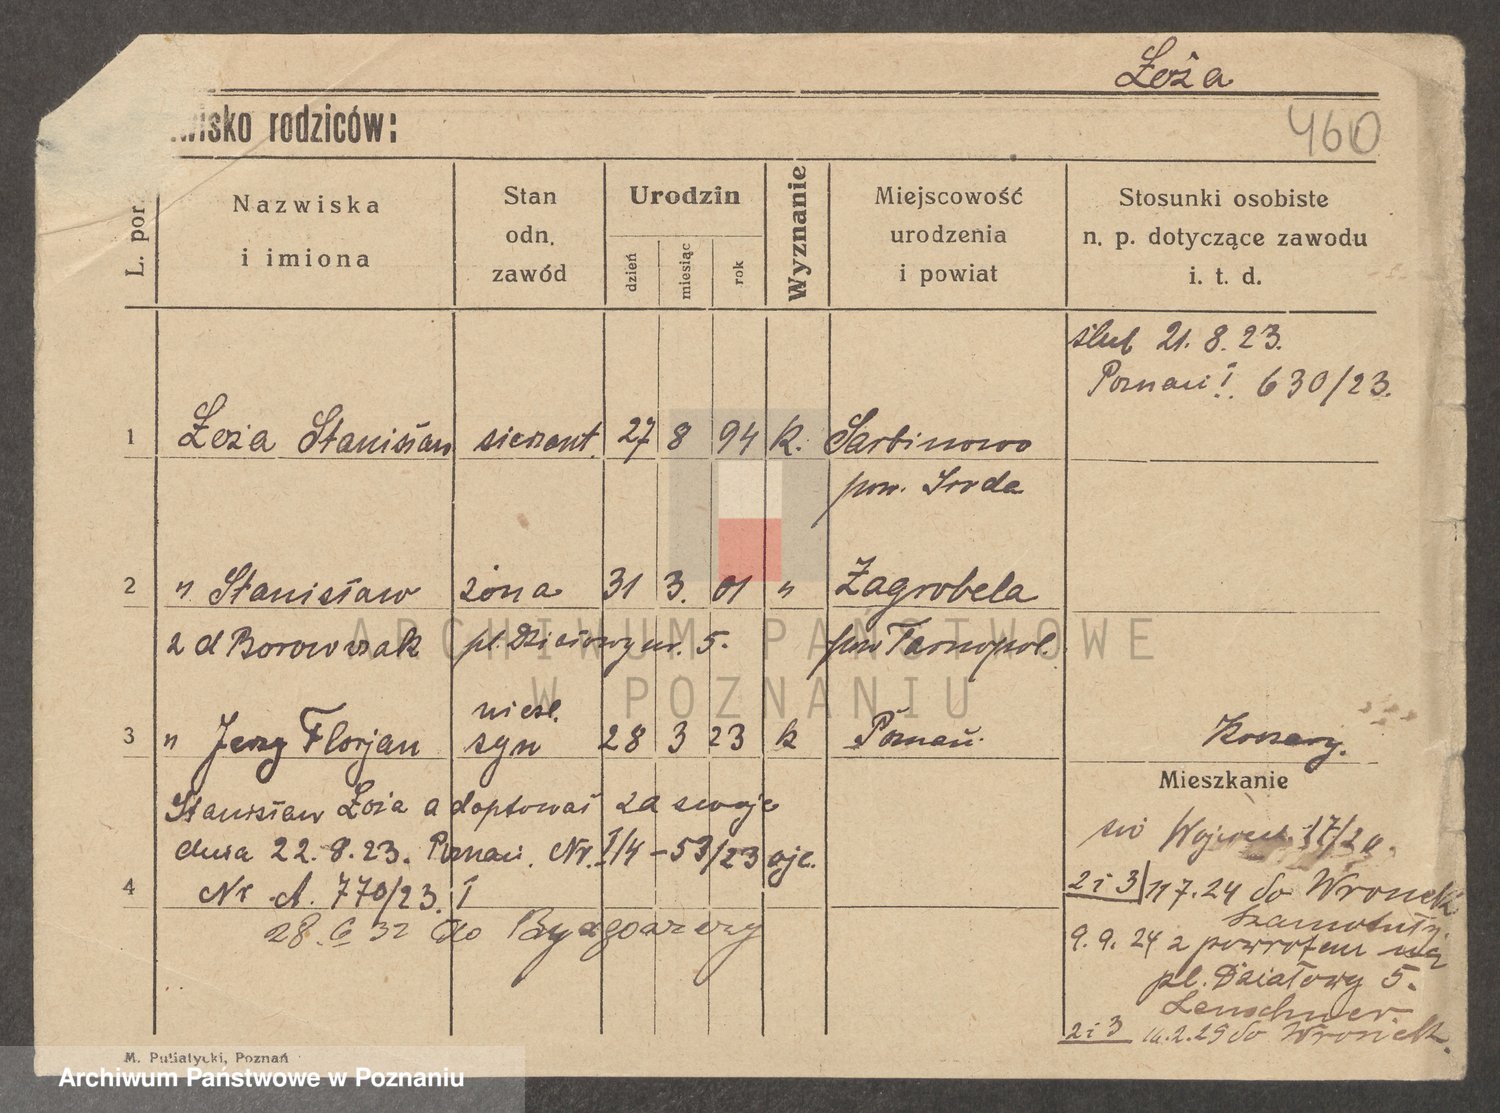 Łoża
wisko rodziców:
460
L. por.
Nazwiska
i imiona
Stan
odn.
zawód
Urodzin
dzień
miesiąc
rok
Wyznanie
Miejscowość
urodzenia
i powiat
Stosunki osobiste
n. p. dotyczące zawodu
i. t. d.
ślub 21. 8. 23.
Poznań I. 630/23.
1 Łoża Stanisław sierżant. 27 8 94 k. Sarbinowo
pow. Środa
2 " Stanisław żona 31 3. 01 " Zagrobela
z d Borowczak pl. Działowy nr. 5. pow Tarnopol.
niesl.
3 " Jerzy Florjan syn 28 3 23 k Poznań.
Koszary.
Mieszkanie
Stanisław Łoża adoptował za swoje
dnia 22. 8. 23. Poznań. Nr. I/4 - 53/23
4 Nr A. 770/23. I
28. 6 32 do Bydgoszczy
św Wojciech 17/20.
2 i 3 11 7. 24 do Wronek
Szamotuły.
9. 9. 24 z powrotem na
pl. Działowy 5.
Lenschner.
2 i 3 14. 2. 25 do Wronek.
M. Putiatycki, Poznań
ARCHIWUM PAŃSTWOWE
W POZNANIU
Archiwum Państwowe w Poznaniu